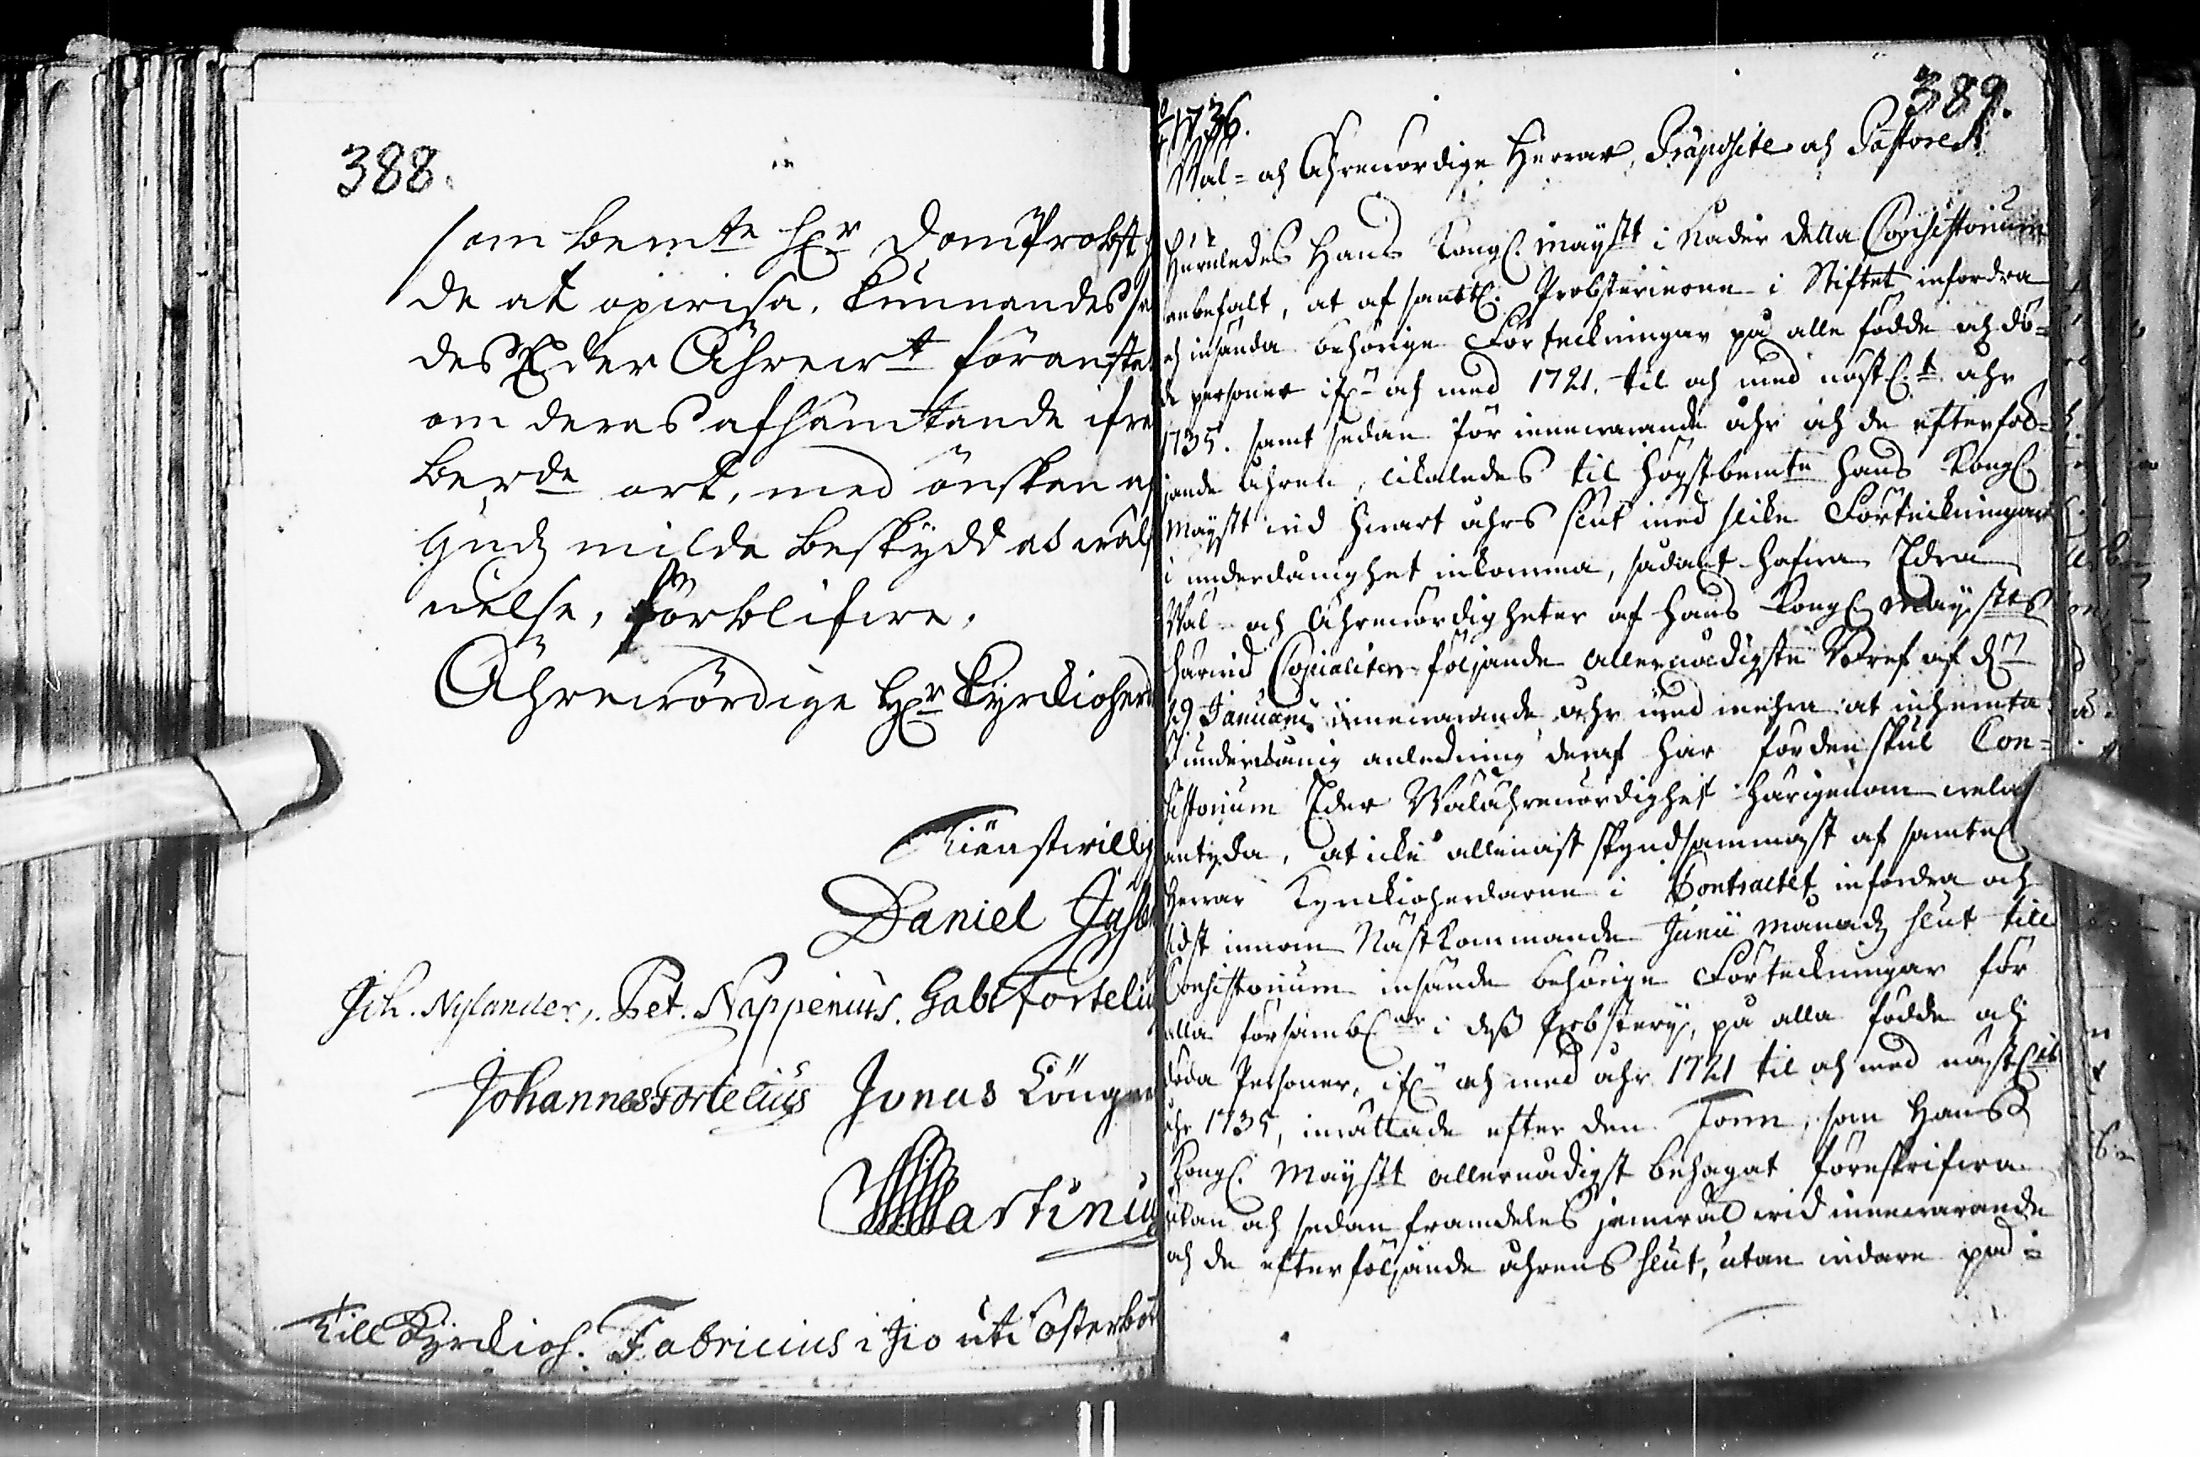 388.
som bemte hr DomProbst
de at opivisa. kunnandes
des Eder Ährewt föranstal
om deras afhämtande ifrå
berde ort, med önskan af
Gudz milde beskydd och wäls
nelse, förblifwe,
Ährewördige hr Kyrckioherd
Tiänstwillig
Daniel Jusle
Joh. Nylander. Pet. Nappenius. Gabr Fortelius
Johannes Fortelius Jonas Löngr
Martinus
Till Kyrckioh. Fabricius i Jio uti Österbot
1736.
389.
Wäl- och Ährewördige Herrar, Præposite och Pastores
Huruledes Hans Kongl. Mayst:t i Nåder detta Consistorium
anbefalt, at af samtl. Probsterierne i Stiftet infordra
och insända behörige Förteckningar på alle födde och dö-
de personer ifrn och med 1721. til och med nästl.t åhr
1735. samt sedan för innewarande åhr och de efterföl-
jande åhren, likaledes til högstbemte Hans Kongl.
Mayst:t wid hwart åhrs slut med slike Förteckningar
i underdånighet inkomma, sådant hafwa Edra
Wäl- och Ährewördigheter af Hans Kongl. Mayst:ts
härwid Copialiter följande allernådigste Bref af dn
29 Januarii innewarande åhr med mehra at inhemta.
I underdånig anledning deraf har fördenskul Con-
sistorium Eder Wälährewördighet härigenom wela
antyda, at icke allenast skyndsammast af samtel.
Herrar Kyrckioherdarne i Contractet infordra och
sidst innom Nästkommande Junii Månadz slut till
Consistorium insända behörige Förteckningar för
alla församblar i dess Probstery, på alla födde och
döda Personer, ifrn och med åhr 1721 til och med nästl.t
åhr 1735, inrättade efter den Form, som Hans
Kongl. Mayst:t allernådigst behagat föreskrifwa
utan och sedan framdeles jemwäl wid innewarande
och de efterföljande åhrens slut, utan widare påd-